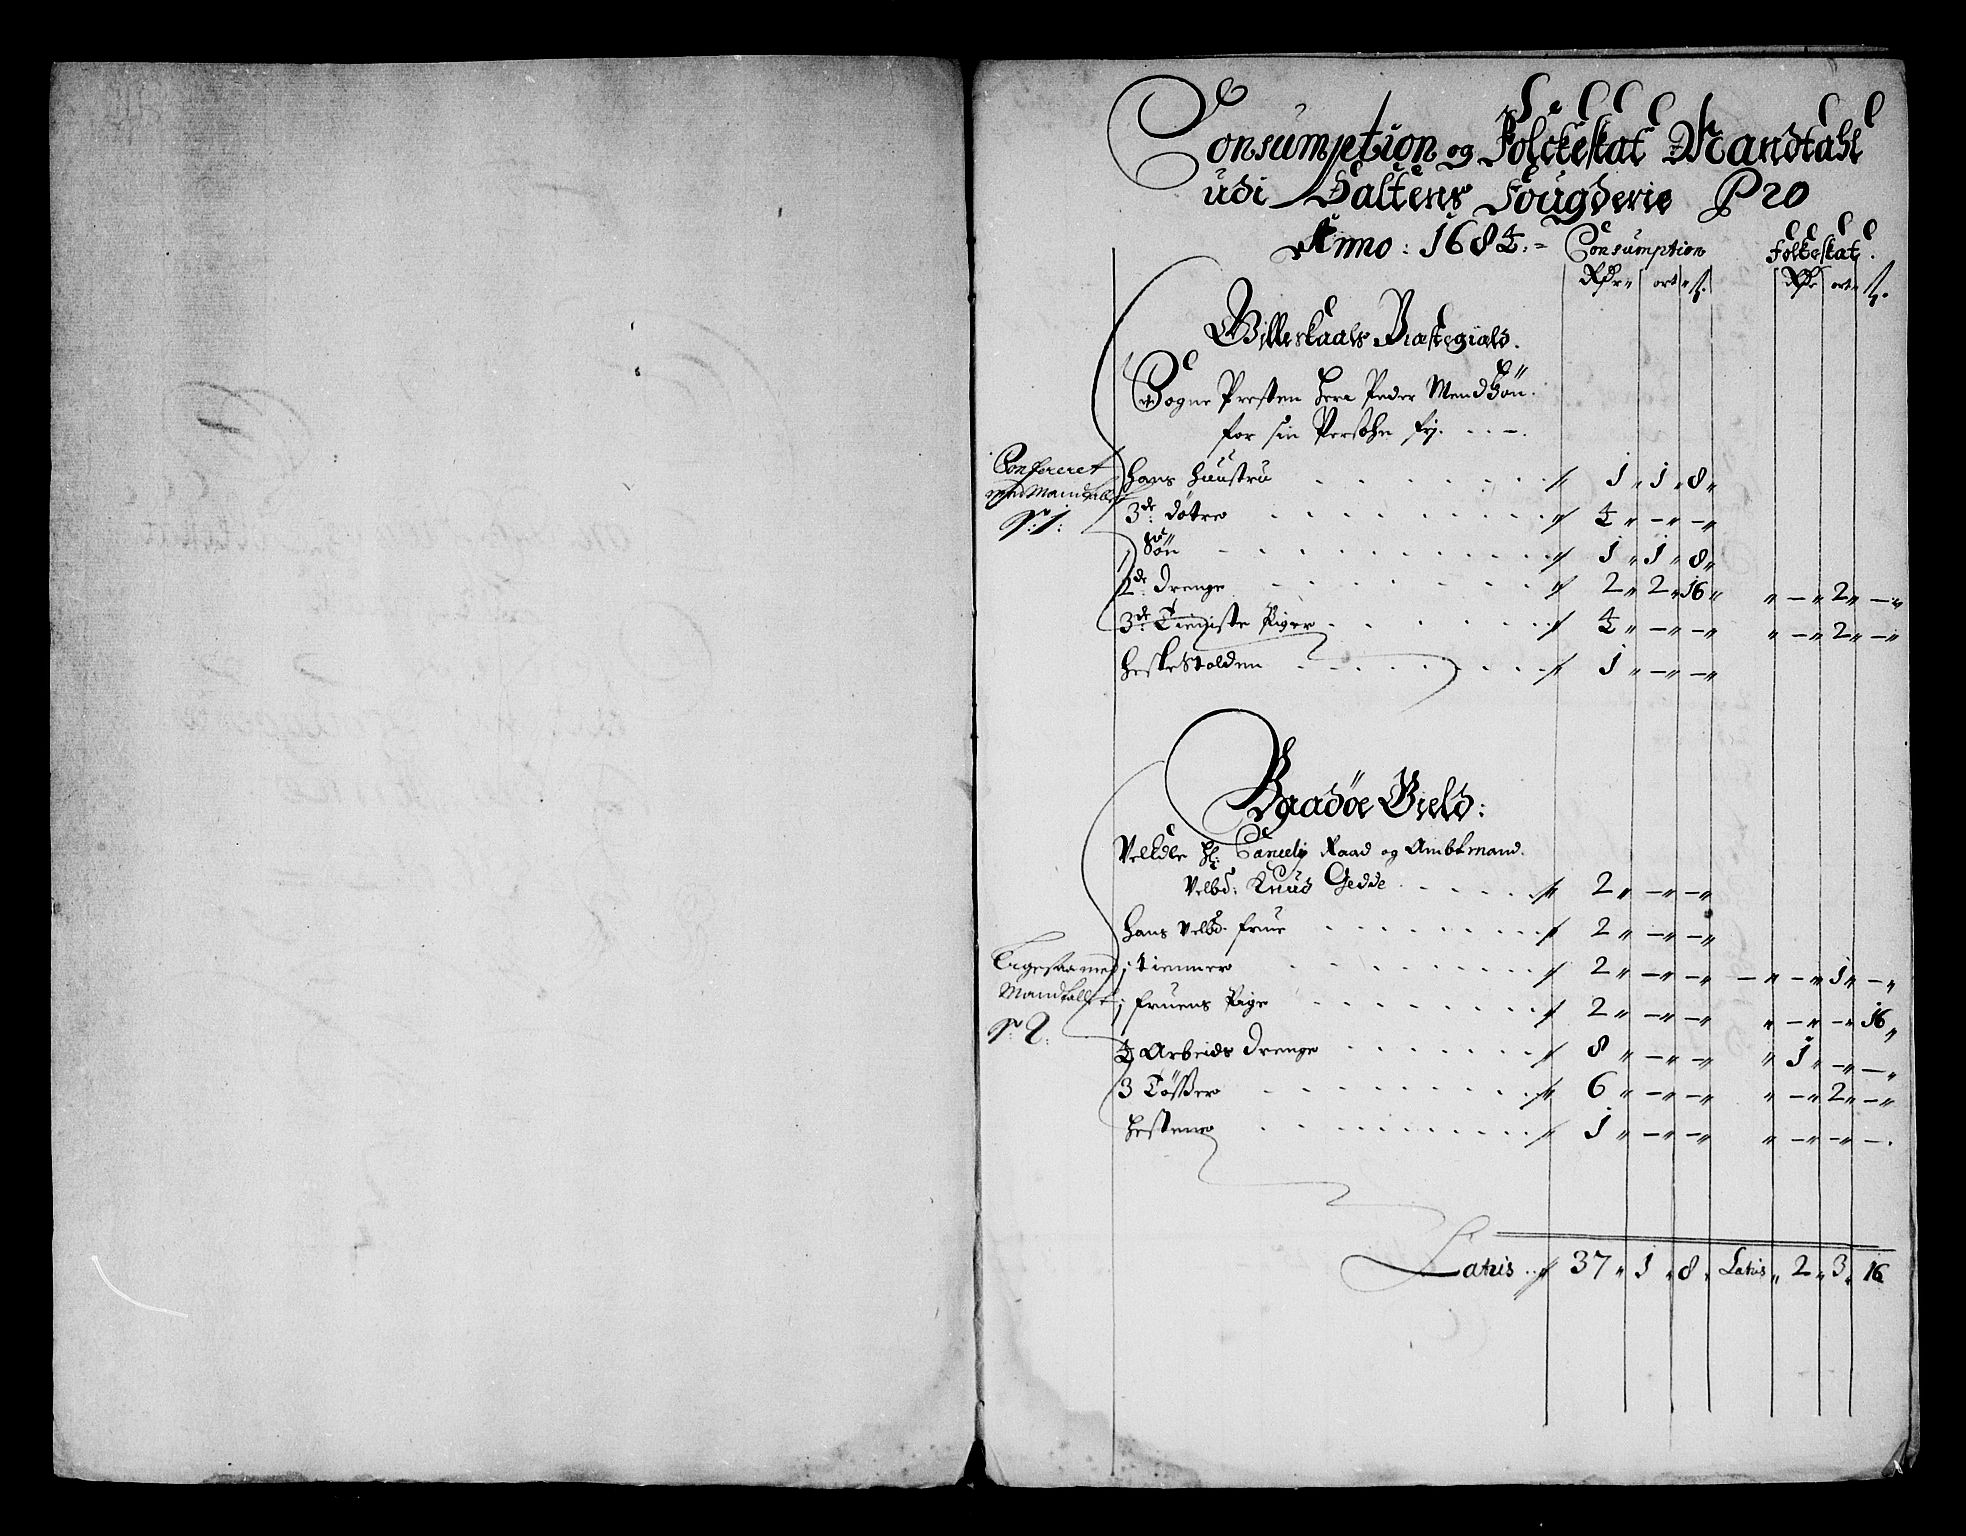 Consumption og Folckeskat Mandtahl
udi Saltens Fougderie Pro
Anno: 1684:
Consumption Folkeskat.
Rdr ort ß. Rdr ort ß.
Gilleskaals Præstegield.
Sogne Presten Herr Peder
for sin Persohn frj.
Conforeret
med Mandtallet
N: 1:
Hans Huustru 1 1 8
3de: Døtre 4 - -
1 Søn 1 1 8
2de: Drenge 2 2 16 - 2 -
3de: Tieniste Piger 4 - - - 2 -
HesteHolden 1 - -
Baadøe Gield:
Velædle Hr: Cancelj Raad og Ambtmand.
Velbd: Knud Gedde 2 - -
Hans Velbd. Frue 2 - -
Ligesaa med
Mandtallet
N: 2:
1 Tienner 2 - - - 1 -
1 Fruens Pige 2 - - - - 16
4 Arbeids Drenge 8 - - 1 - -
3 Tøsser 6 - - - 2 -
Hestene 1 - - - - -
Latus 37 1 8 Latus 2 3 16